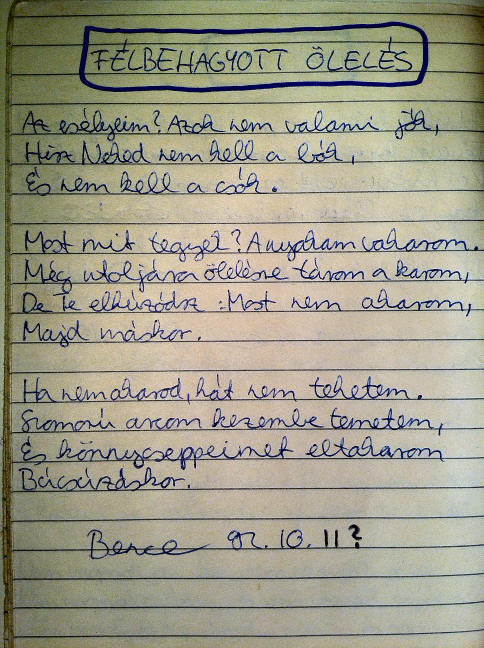 FÉLBEHAGYOTT ÖLELÉS
Az esélyeim? Azok nem valami jók,
Hisz Neked nem kell a bók,
És nem kell a csók.
Most mit tegyek? A nyakam vakarom.
Még utoljára ölelésre tárom a karom,
De Te elhúzódsz: Most nem akarom,
Majd máskor.
Ha nem akarod, hát nem tehetem.
Szomorú arcom kezembe temetem,
És könnycseppeimet eltakarom
Búcsúzáskor.
Bence 92.10.11?